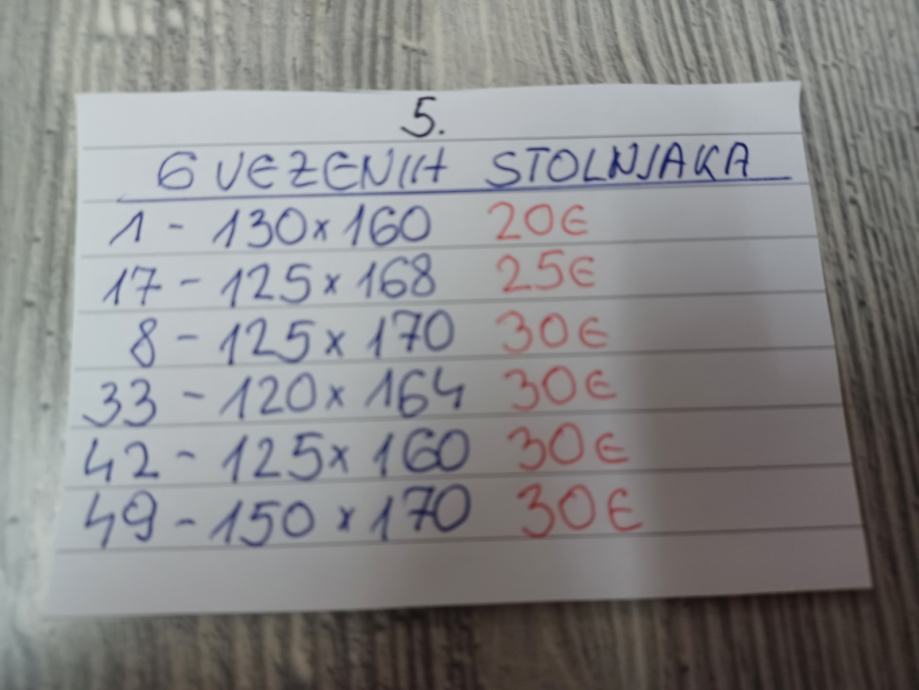 5.
6 VEZENIH STOLNJAKA
1 - 130 x 160 20€
17 - 125 x 168 25€
8 - 125 x 170 30€
33 - 120 x 164 30€
42 - 125 x 160 30€
49 - 150 x 170 30€